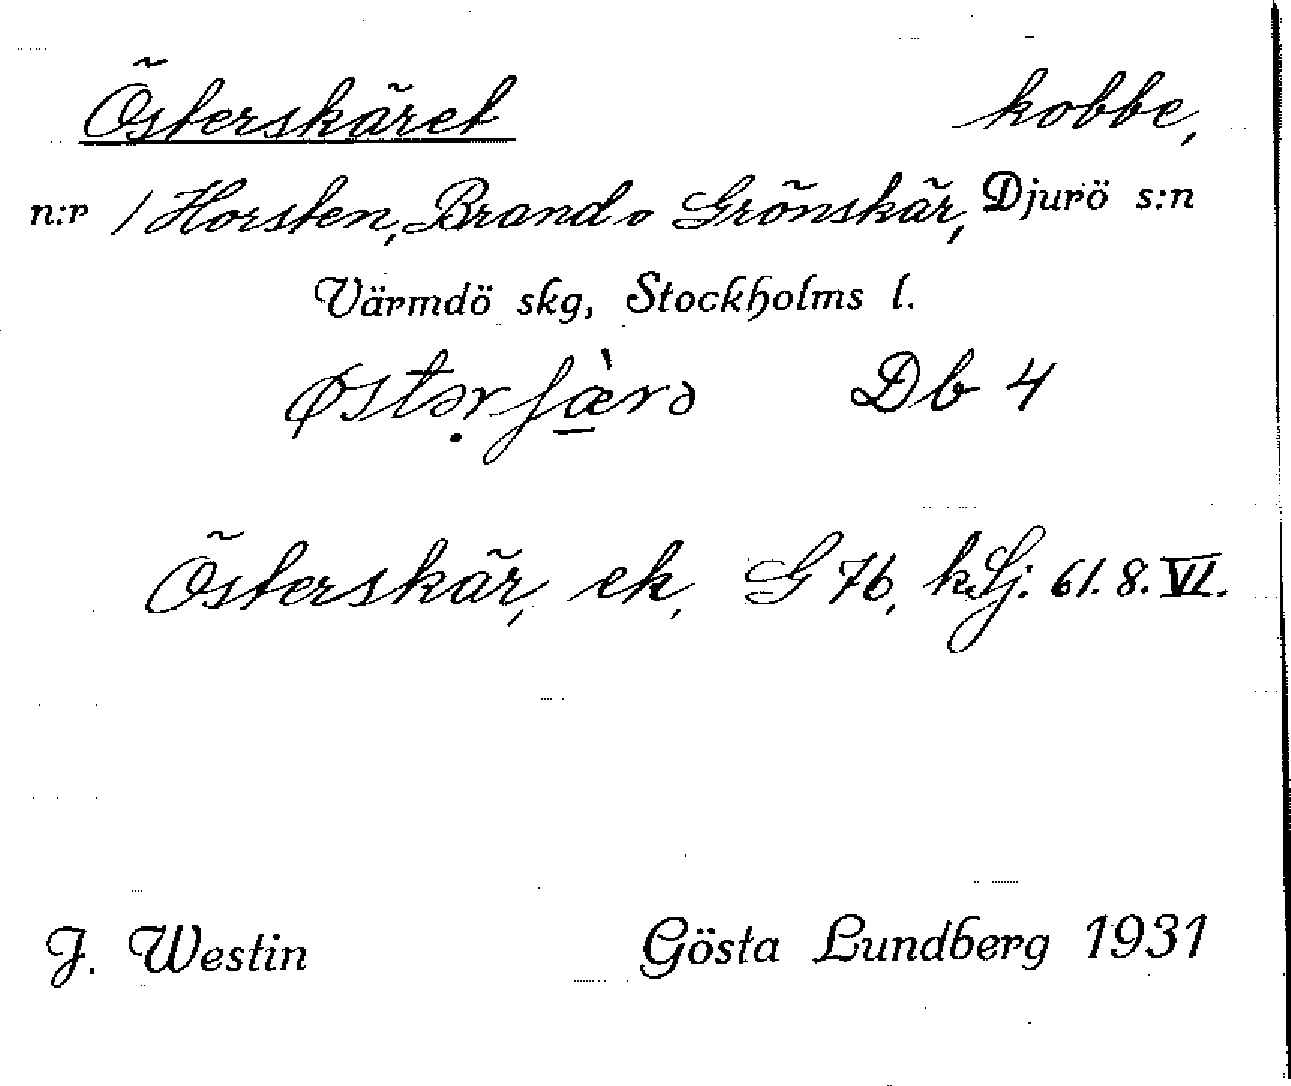 Österskäret kobbe,
n:r 1 Horsten, Brand o Grönskär, Djurö s:n
Värmdö skg, Stockholms l.
østərʃæ̀rə Db 4
Österskär, ek, G 76, kLj. 61. 8. VI.
J. Westin Gösta Lundberg 1931